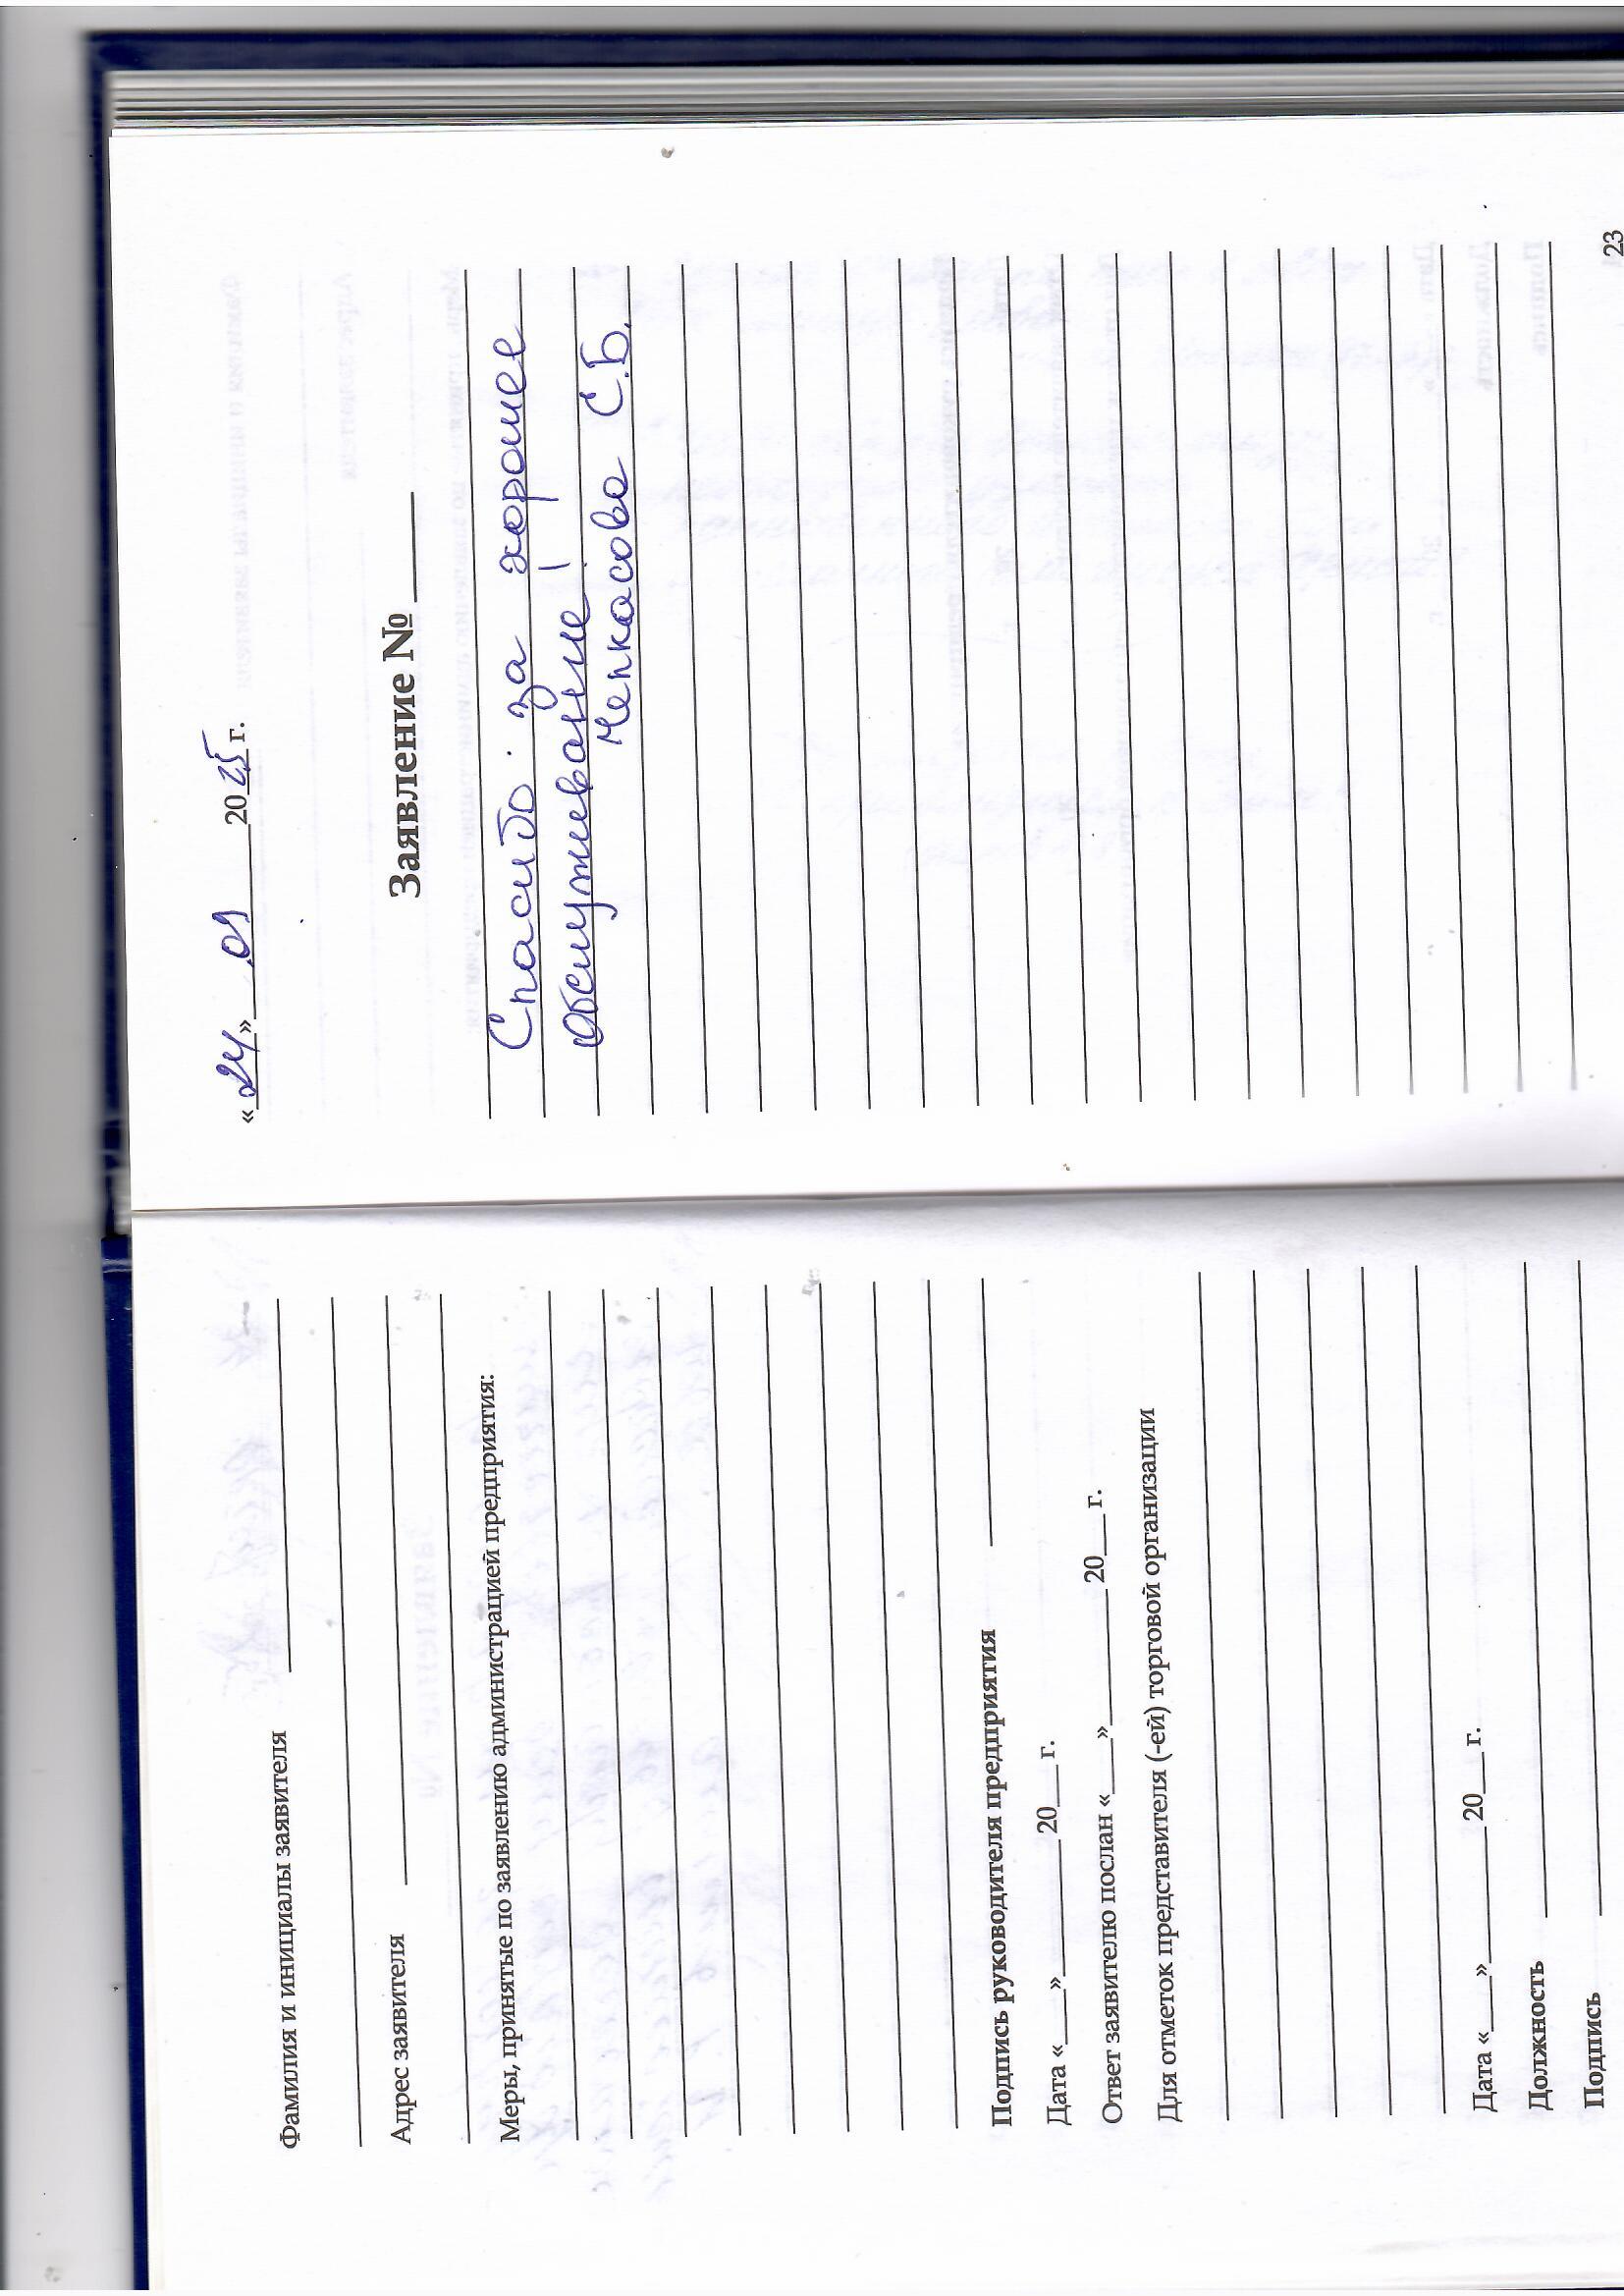 Фамилия и инициалы заявителя
Адрес заявителя
Меры, принятые по заявлению администрацией предприятия:
Подпись руководителя предприятия
Дата «___»________ 20___ г.
Ответ заявителю послан «___»________ 20___ г.
Для отметок представителя (-ей) торговой организации
Дата «___»________ 20___ г.
Должность
Подпись
«24» 09 2025 г.
Заявление № ____
Спасибо за хорошее
обслуживание!
С.Б.
23